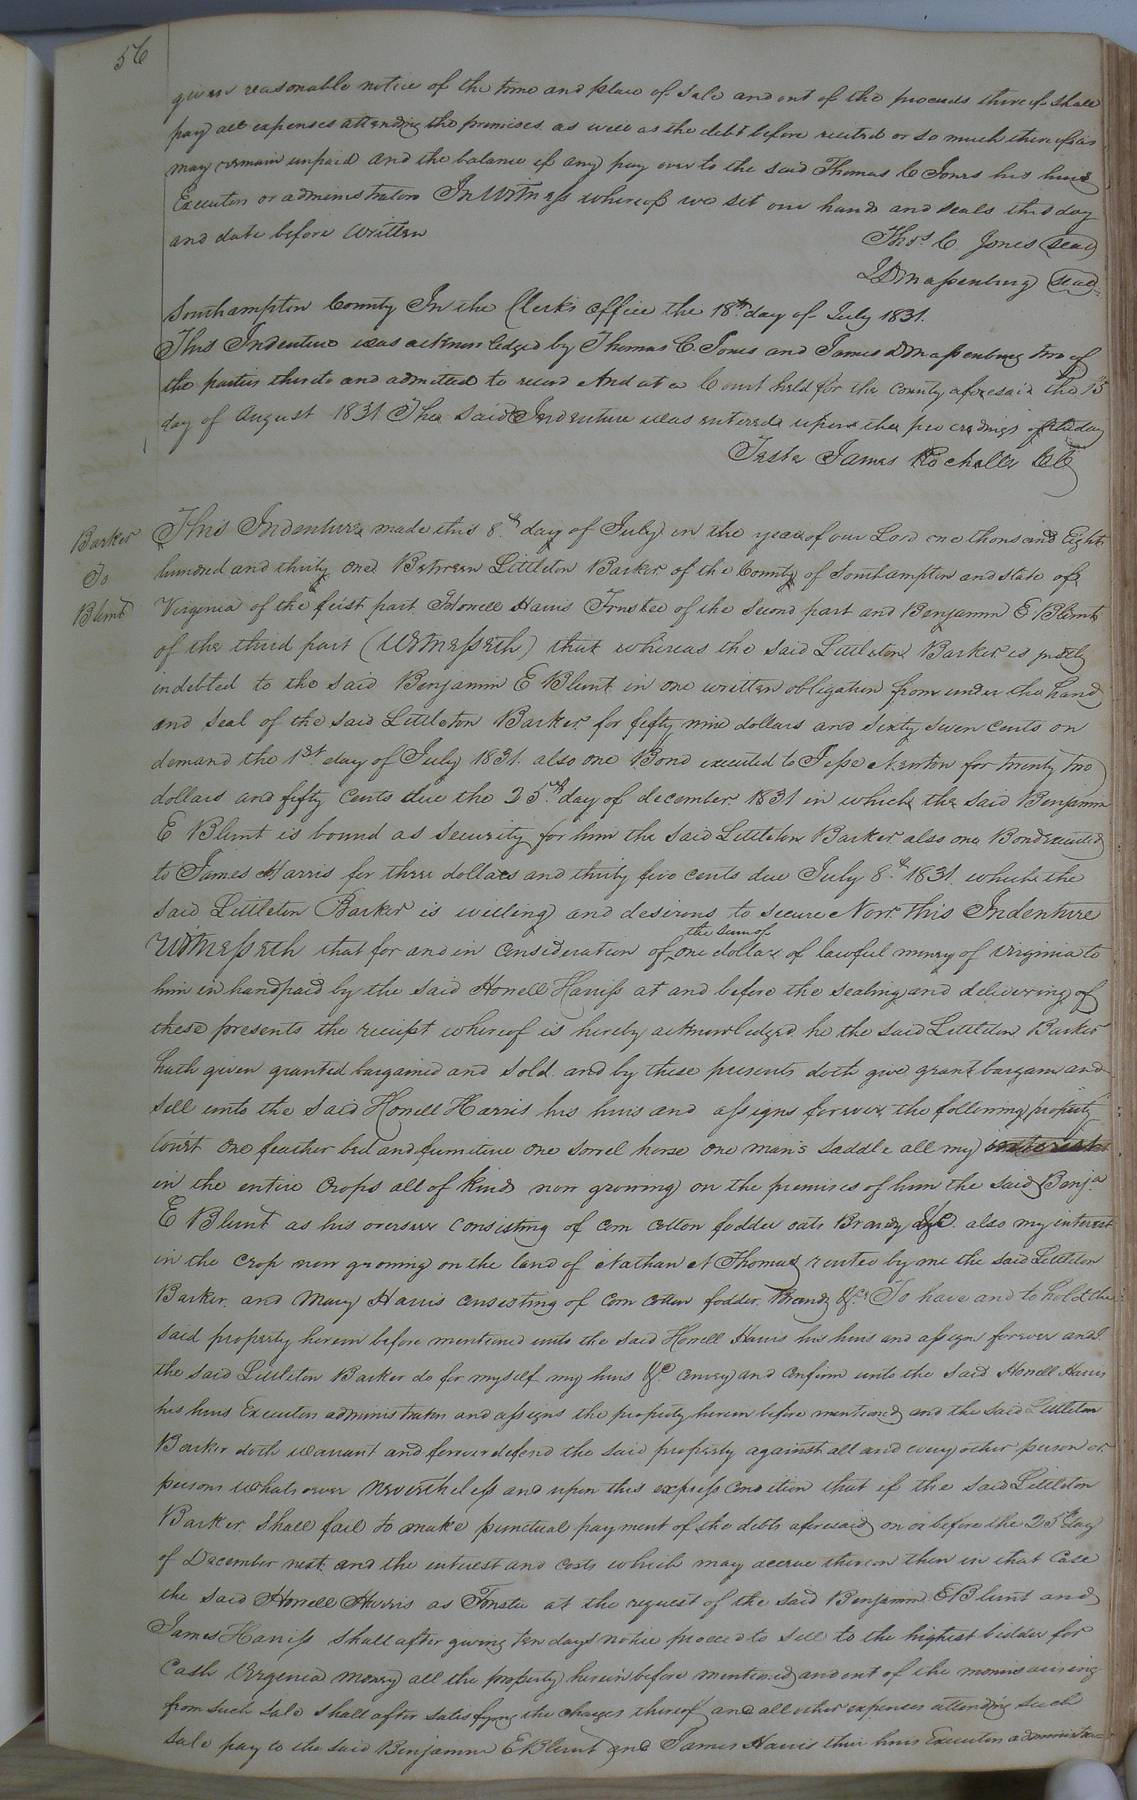 56
given reasonable notice of the time and place of sale and out of the proceeds thereof shall
pay all expenses attending the premises as well as the debt before recited or so much thereof as
may remain unpaid and the balance if any pay over to the said Thomas C Jones his heirs
Executors or administrators In Witness whereof we set our hands and seals the day
and date before written
Thos. C. Jones (seal)
J D Massenburg (seal)
Southampton County In the Clerks office the 18th day of July 1831.
This Indenture was acknowledged by Thomas C. Jones and James D Massenburg two of
the parties thereto and admitted to record And at a Court held for the county aforesaid the 15
day of August 1831 The said Indenture was entered upon the proceedings of the day
Teste James Rochelle CC
Barker
To
Blunt
This Indenture made this 8th day of July in the year of our Lord one thousand Eight
hundred and thirty one Between Littleton Barker of the County of Southampton and state of
Virginia of the first part Howell Harris Trustee of the second part and Benjamin E Blunt
of the third part (Witnesseth) that whereas the said Littleton Barker is justly
indebted to the said Benjamin E Blunt in one written obligation from under the hand
and seal of the said Littleton Barker for fifty nine dollars and sixty seven cents on
demand the 1st day of July 1831. also one Bond executed to Jesse Newton for twenty two
dollars and fifty cents due the 25th day of december 1831 in which the said Benjamin
E Blunt is bound as security for him the said Littleton Barker also one Bond executed
to James Harris for three dollars and thirty five cents due July 8th 1831. which the
said Littleton Barker is willing and desirous to secure Now this Indenture
the sum of
Witnesseth that for and in consideration of one dollar of lawful money of Virginia to
him in hand paid by the said Howell Harriss at and before the sealing and delivering of
these presents the receipt whereof is hereby acknowledged he the said Littleton Barker
hath given granted bargained and sold and by these presents doth give grant bargain and
sell unto the said Howell Harris his heirs and assigns forever the following property
to wit one feather bed and furniture one sorrel horse one man's saddle all my interest
in the entire crops all of kind now growing on the premises of him the said Benja
E Blunt as his overseer consisting of corn cotton fodder oats Brandy &c. also my interest
in the crop now growing on the land of Nathan N Thomas rented by me the said Littleton
Barker and Mary Harris consisting of corn cotton fodder Brandy &c. To have and to hold the
said property herein before mentioned unto the said Howell Harris his heirs and assigns forever and
the said Littleton Barker do for myself my heirs &c. convey and confirm unto the said Howell Harris
his heirs Executors administrators and assigns the property herein before mentioned and the said Littleton
Barker doth warrant and forever defend the said property against all and every other person or
persons whatsoever nevertheless and upon this express condition that if the said Littleton
Barker shall fail to make punctual payment of the debts aforesaid on or before the 25th day
of December next and the interest and costs which may accrue thereon then in that case
the said Howell Harris as Trustee at the request of the said Benjamin E Blunt and
James Harriss shall after giving ten days notice proceed to sell to the highest bidder for
cash Virginia money all the property herein before mentioned and out of the monies arising
from such sale shall after satisfying the charges thereof and all other expenses attending such
sale pay to the said Benjamin E Blunt and James Harris their heirs Executors administra=